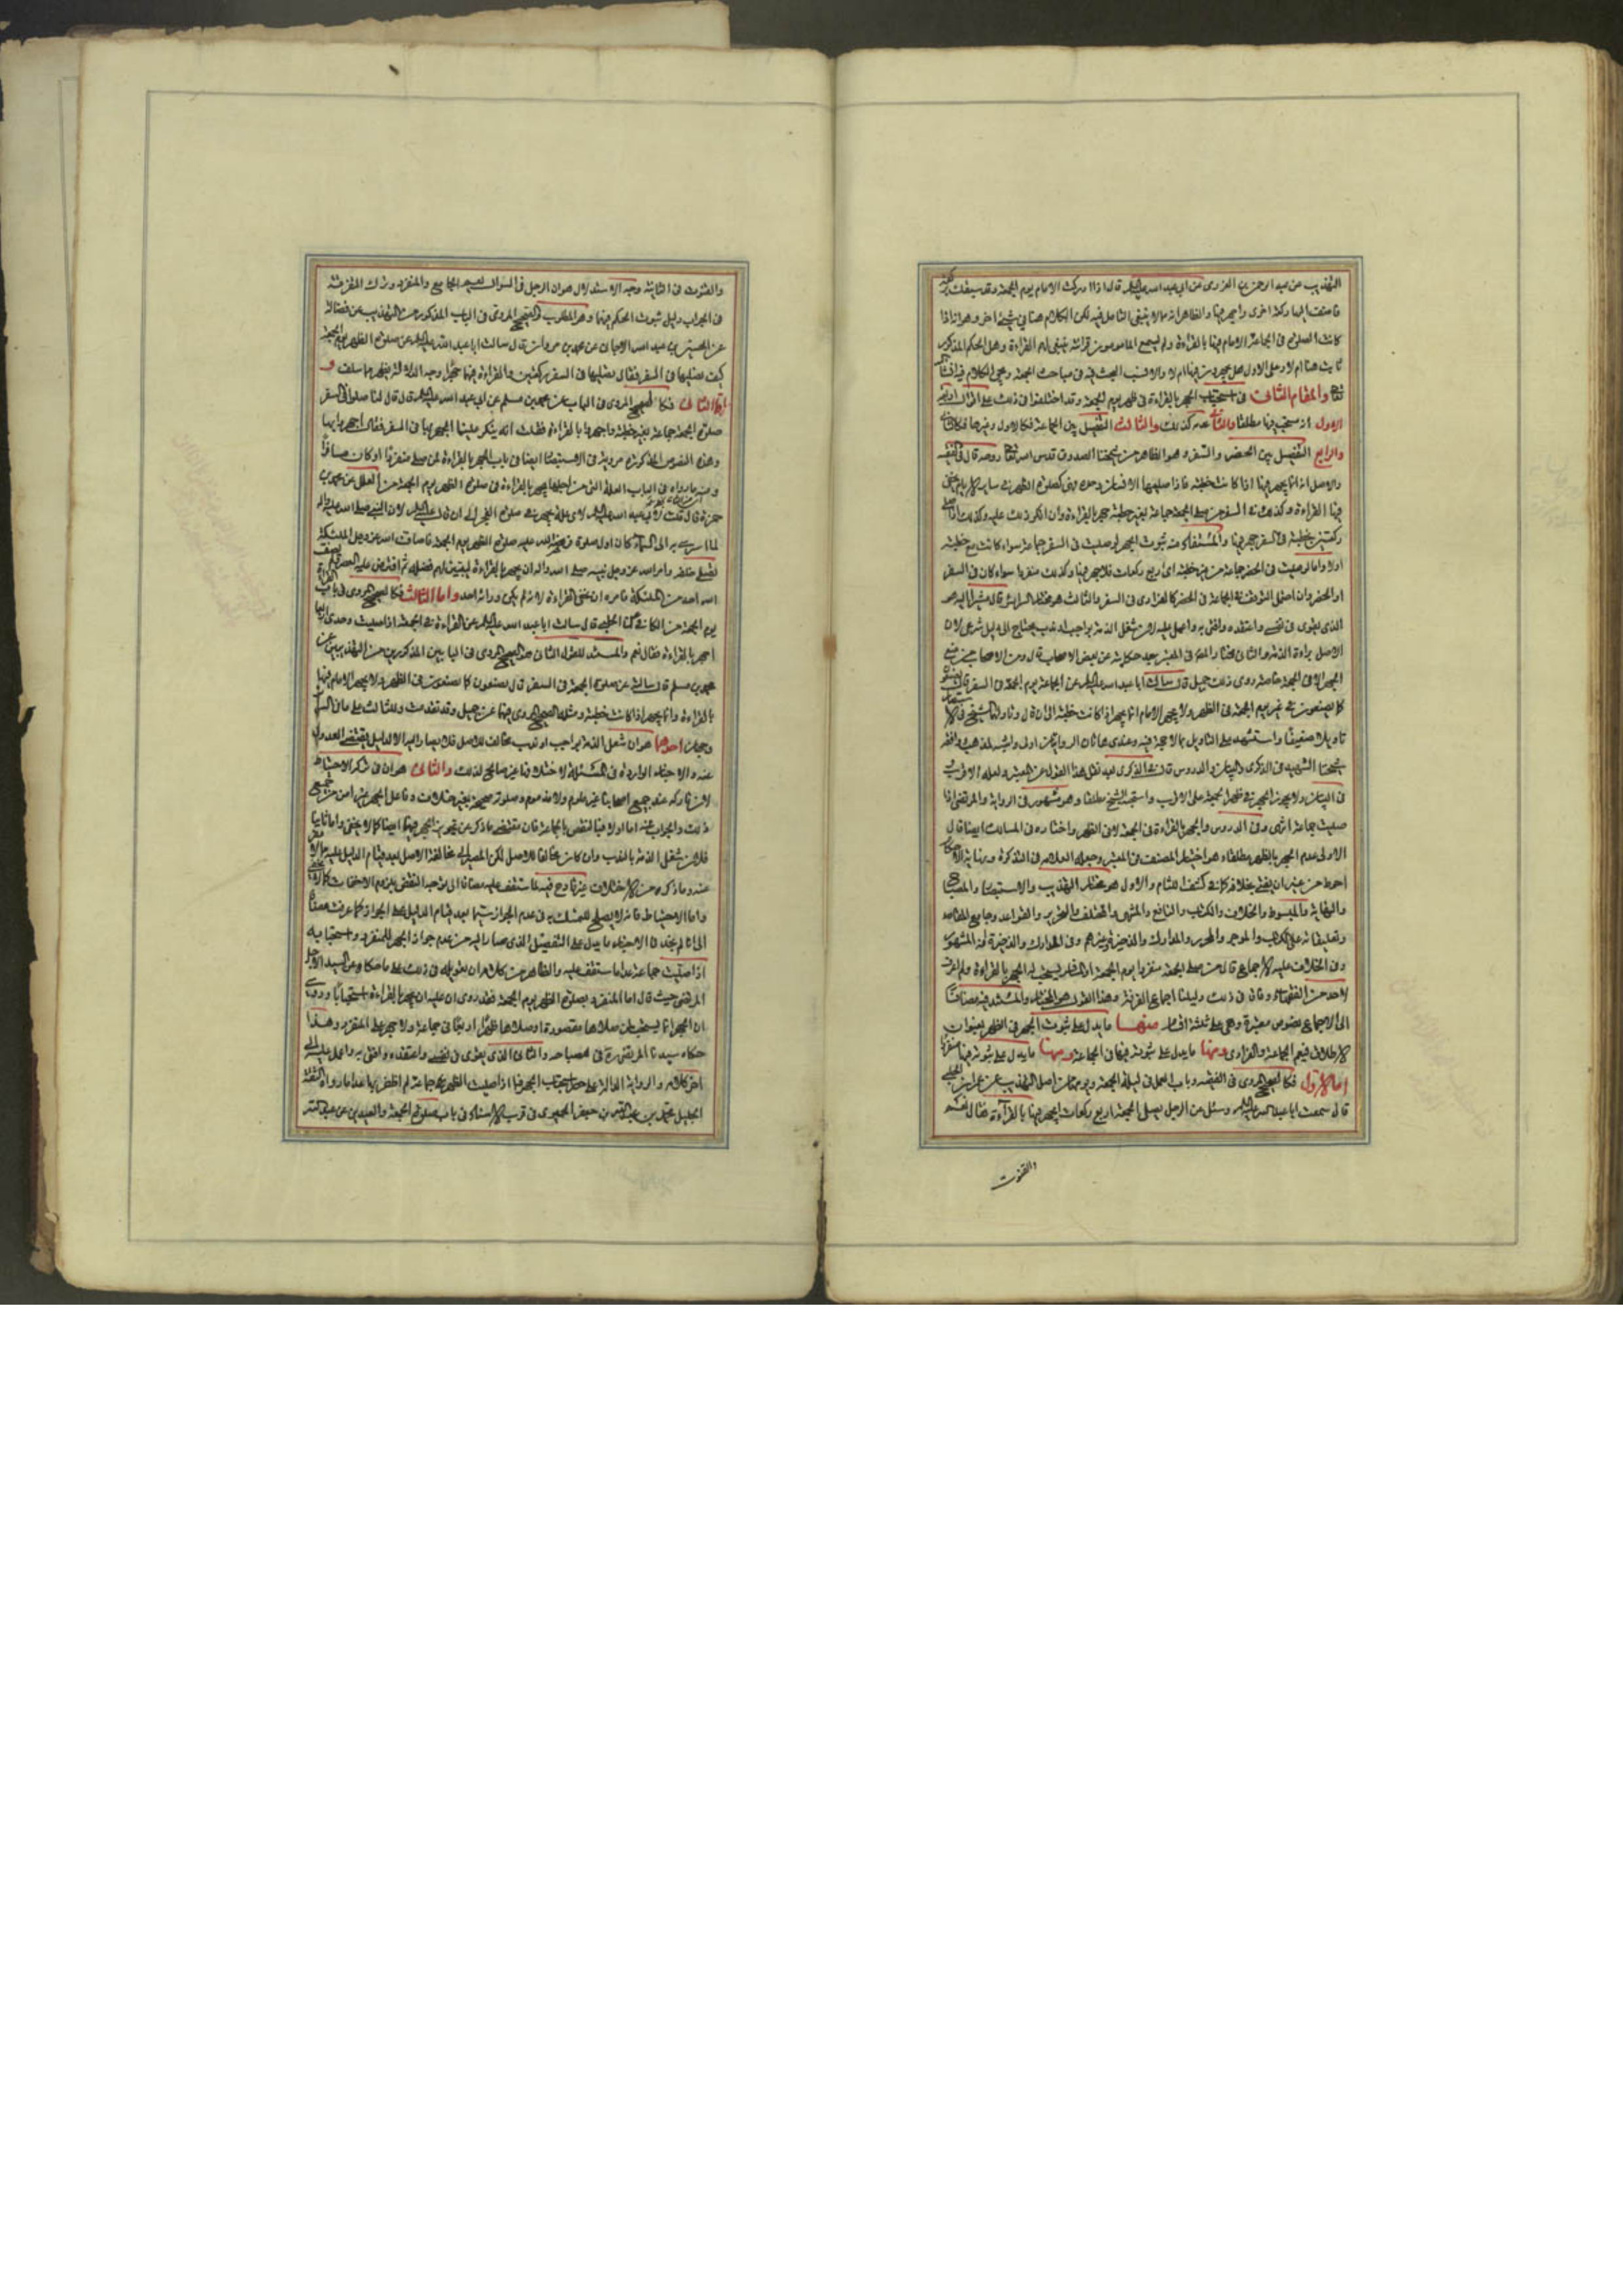 التهذيب عن عبد الرحمن العزرمى عن ابى عبد الله عليه السلم قال اذا ادركت الامام يوم الجمعة وقد سبقك بركعة
فاضف اليها ركعة اخرى واجهر فيها والظاهر انه مما لا ينبغى التامل فيه لكن الكلام هنا فى شىء اخر وهو انه اذا
كانت الصلوة فى الجماعة الامام فيها بالقراءة ولم يسمع المامومون قرائته ينبغى لهم القراءة وهل الحكم المذكور
ثابت هنا ام لا وعلى الاول هل يجهرون فيها ام لا والانسب البحث فيه فى مباحث الجمعة ويجىء الكلام فيه انشاء الله
تعالى والمقام الثانى فى استحباب الجهر بالقراءة فى ظهر يوم الجمعة وقد اختلفوا فى ذلك على اقوال اربعة
الاول انه يستحب فيها مطلقا والثانى عدمه كذلك والثالث التفصيل بين الجماعة فكالاول وغيرها فكالثانى
والرابع التفصيل بين الحضر والسفر وهو الظاهر من شيخنا الصدوق قدس الله تعالى روحه قال فى الفقيه
والاصل انه انما يجهر فيها اذا كانت خطبة فاذا صليها الانسان وحده فهى كصلوة الظهر فى ساير الايام يخفى
فيها القراءة وكذلك فى السفر من صلى الجمعة جماعة بغير خطبة جهر بالقراءة وان انكر ذلك عليه وكذلك اذا صلى
ركعتين بخطبة فى السفر جهر فيها والمستفاد منه ثبوت الجهر لو صليت فى السفر جماعة سواء كانت مع خطبة
او لا واما لو صليت فى الحضر جماعة من غير خطبة اى اربع ركعات فلا جهر فيها وكذلك منفردا سواء كان فى السفر
او الحضر وان احتمل التوقف فى الجماعة فى الحضر كالفرادى فى السفر والثالث هو مختار السرائر قال مشيرا اليه هو
الذى يقوى فى نفسى واعتقده وافتى به واعمل عليه لان شغل الذمة بواجب او ندب يحتاج الى دليل شرعى لان
الاصل براءة الذمة والثانى مختار المعتبر فى المعتبر بعد حكايته عن بعض الاصحاب قال ومن الاصحاب من منع
الجهر الا فى الجمعة خاصة روى ذلك جميل قال سالت ابا عبد الله عليه السلم عن الجماعة يوم الجمعة فى السفر قال يصنعون
كما يصنعون فى غير يوم الجمعة فى الظهر ولا يجهر الامام انما يجهر اذا كانت خطبة الى ان قال وتاولها الشيخ فى الاستبصار
تاويلا ضعيفا واستشهد على التاويل بما لا حجة فيه وعندى هاتان الروايتان اولى واشبه بالمذهب وافقه
شيخنا الشهيد فى الذكرى والبيان والدروس قال فى الذكرى بعد نقل هذا القول عن المعتبر ولعله الاقرب
فى البيان ولا يجوز الجهر فى ظهر الجمعة على الاقرب واستحبه الشيخ مطلقا وهو مشهور فى الرواية والمرتضى اذا
صليت جماعة انتهى وفى الدروس والجهر بالقراءة فى الجمعة لا فى الظهر واختاره فى المسالك ايضا قال
الاولى عدم الجهر بالظهر مطلقا وهو اختيار المصنف فى المعتبر وجعله العلامة فى التذكرة ونهاية الاحكام
احوط من غير ان يفتى بخلافه كما فى كشف اللثام والاول هو مختار التهذيب والاستبصار والمصباح
والنهاية والمبسوط والخلاف والكتاب والنافع والمنتهى والمختلف والتحرير والقواعد وجامع المقاصد
وتعليقاته على الكتاب والموجز والمحرر والمدارك والذخيرة وغيرهم وفى المدارك والذخيرة انه المشهور
وفى الخلاف عليه الاجماع قال من صلى الجمعة منفردا يوم الجمعة او المسافر يستحب له الجهر بالقراءة ولم اعرف
لاحد من الفقهاء وفاقا فى ذلك دليلنا اجماع الفرقة وهذا القول هو المختار والمستند فيه مضافا
الى الاجماع نصوص معتبرة وهى على ثلثة اقسام منها ما يدل على ثبوت الجهر فى الظهر بعنوان
الاطلاق فيعم الجماعة والفرادى ومنها ما يدل على ثبوته فيها فى الجماعة ومنها ما يدل على ثبوته فيها منفردا
اما الاول فكالصحيح المروى فى الفقيه وباب العمل فى ليلة الجمعة ويومها من اصل التهذيب عن عمران الحلبى
قال سمعت ابا عبد الله عليه السلم وسئل عن الرجل يصلى الجمعة اربع ركعات ايجهر فيها بالقراءة فقال نعم
والقنوت
والقنوت فى الثانية وجه الاستدلال هو ان الرجل فى السؤال يعم الجامع والمنفرد وترك التعرض
فى الجواب دليل ثبوت الحكم فيهما وهو المطلوب والصحيح المروى فى الباب المذكور من التهذيب عن فضالة
عن الحسين بن عبد الله الارجانى عن محمد بن مروان قال سالت ابا عبد الله عليه السلم عن صلوة الظهر يوم الجمعة
كيف نصليها فى السفر فقال تصليها فى السفر ركعتين والقراءة فيها جهرا وجه الدلالة يظهر مما سلف و
اما الثانى فكالصحيح المروى فى الباب عن محمد بن مسلم عن ابى عبد الله عليه السلم قال قال لنا صلوا فى السفر
صلوة الجمعة جماعة بغير خطبة واجهروا بالقراءة فقلت انه ينكر علينا الجهر بها فى السفر فقال اجهروا بها
وهذه النصوص المذكورة مروية فى الاستبصار ايضا فى باب الجهر بالقراءة لمن صلى منفردا او كان مسافرا
ومنه ما رواه فى الباب العلة التى من اجلها يجهر بالقراءة فى صلوة الظهر يوم الجمعة من العلل عن محمد بن
حمزة قال قلت لابى عبد الله عليه السلم لاى علة يجهر فى صلوة الفجر الى ان قال عليه السلم لان النبى صلى الله عليه واله
لما اسرى به الى السماء كان اول صلوة فرضها الله عليه صلوة الظهر يوم الجمعة فاضاف الله عز وجل الملئكة
تصلى خلفه وامر الله عز وجل نبيه صلى الله واله ان يجهر بالقراءة ليتبين لهم فضله ثم افترض عليه العصر ولم يضف
اليه احدا من الملئكة فامره ان يخفى القراءة لانه لم يكن ورائه احد واما الثالث فكالصحيح المروى فى باب القراءة
يوم الجمعة من الكافى عن الحلبى قال سالت ابا عبد الله عليه السلم عن القراءة فى الجمعة اذا صليت وحدى اربعا
اجهر بالقراءة فقال نعم والمستند للقول الثانى هو الصحيح المروى فى البابين المذكورين من التهذيبين عن
محمد بن مسلم قال سالته عن صلوة الجمعة فى السفر قال يصنعون كما يصنعون فى الظهر ولا يجهر الامام فيها
بالقراءة وانما يجهر اذا كانت خطبة ومثله الصحيح المروى فيهما عن جميل وقد تقدمت وللثالث على ما فى السرائر
وجهان احدهما هو ان شغل الذمة بواجب او ندب مخالف للاصل فلا يصار اليه الا لدليل يقتضى العدول
عنه والاخبار الواردة فى المسئلة لاختلافها غير صالح لذلك والثانى هو ان فى تركه الاحتياط
لان تاركه عند جميع اصحابنا غير ملوم ولا مذموم وصلوته صحيحة بغير خلاف وفاعل الجهر غير امن من جميع
ذلك والجواب عنه اما اولا فبالنقض بالجماعة فان مقتضى ما ذكر عن تجويز الجهر فيها ايضا كما لا يخفى واما ثانيا
فلان شغل الذمة بالندب وان كان مخالفا للاصل لكن المصير الى مخالفة الاصل بعد قيام الدليل عليه مما لا محيص
عنه وما ذكره من الاختلاف غير قادح فيه لما ستقف عليه مضافا الى توجه النقض بلزوم الاخفات كما لا يخفى
واما الاحتياط فانه لا يصلح للتمسك به فى عدم الجواز سيما بعد قيام الدليل على الجواز كما عرفت مضافا
الى انا لم نجد فى الاخبار ما يدل على التفصيل الذى صار اليه من عدم جواز الجهر للمنفرد واستحبابه
اذا صليت جماعة عدا ما ستقف عليه والظاهر من كلامه ان تعويله فى ذلك على ما حكاه عن السيد الاجل
المرتضى حيث قال اما المنفرد بصلوة الظهر يوم الجمعة فقد روى ان عليه ان يجهر بالقراءة استحبابا وروى
ان الجهر انما يستحب لمن صلاها مقصورة او صلاها ظهرا اربعا فى جماعة ولا جهر على المنفرد وهذا
حكاه سيدنا المرتضى ره فى مصباحه والثانى الذى يقوى فى نفسى واعتقده وافتى به واعمل عليه الى
اخر كلامه والرواية الدالة على جواز استحباب الجهر فيما اذا صليت الظهر جماعة لم اظفر بها عدا ما رواه الثقة
الجليل محمد بن عبد الله بن جعفر الحميرى فى قرب الاسناد فى باب صلوة الجمعة والعيدين عن عبد الله